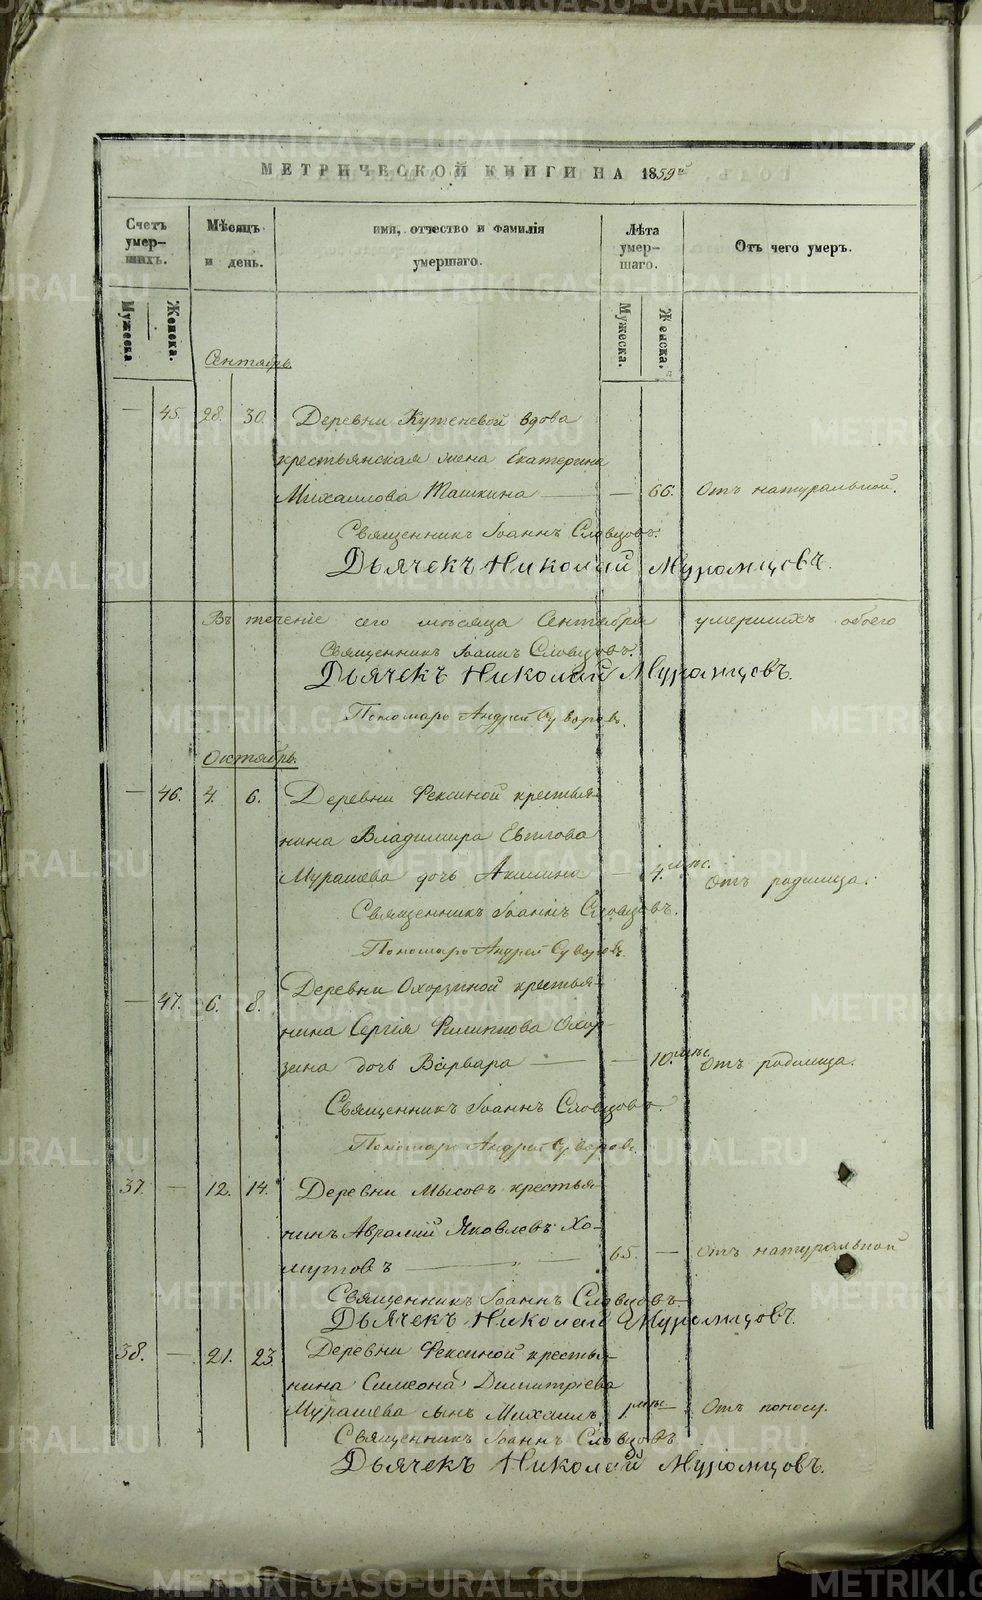 МЕТРИЧЕСКОЙ КНИГИ НА 1859й
Счетъ умер-шихъ.
Мужеска
Женска.
Мѣсяцъ и день.
имя, отчество и фамилія умершаго.
Лѣта умер-шаго.
Мужеска.
Женска.
Отъ чего умеръ.
Сентябрь.
— 45. 28. 30. Деревни Кутеневой вдова
крестьянская жена Екатерина
Михаилова Ташкина — — 66. Отъ натуральной.
Священникъ Іоаннъ Словцовъ.
Дьячекъ Николай Муромцовъ.
Въ теченіе сего мѣсяца Сентября умершихъ обоего
Священникъ Іоаннъ Словцовъ.
Дьячекъ Николай Муромцовъ.
Пономарь Андрей Суворовъ.
Октябрь.
— 46. 4. 6. Деревни Фексиной крестья-
нина Владимира Евплова
Мурашева дочь Акилина — 4. мѣс. Отъ родимца.
Священникъ Іоаннъ Словцовъ.
Пономарь Андрей Суворовъ.
— 47. 6. 8. Деревни Охорзиной крестья-
нина Сергія Филиппова Охор-
зина дочь Варвара — — 10. мѣс. Отъ родимца.
Священникъ Іоаннъ Словцовъ.
Пономарь Андрей Суворовъ.
37. — 12. 14. Деревни Мысовъ крестья-
нинъ Аврамій Яковлевъ Хо-
мутовъ — 65. — Отъ натуральной
Священникъ Іоаннъ Словцовъ.
Дьячекъ Николай Муромцовъ.
38. — 21. 23 Деревни Фексиной крестья-
нина Симеона Димитріева
Мурашева сынъ Михаилъ 1 мѣс. — Отъ поносу.
Священникъ Іоаннъ Словцовъ
Дьячекъ Николай Муромцовъ.
METRIKI.GASO-URAL.RU